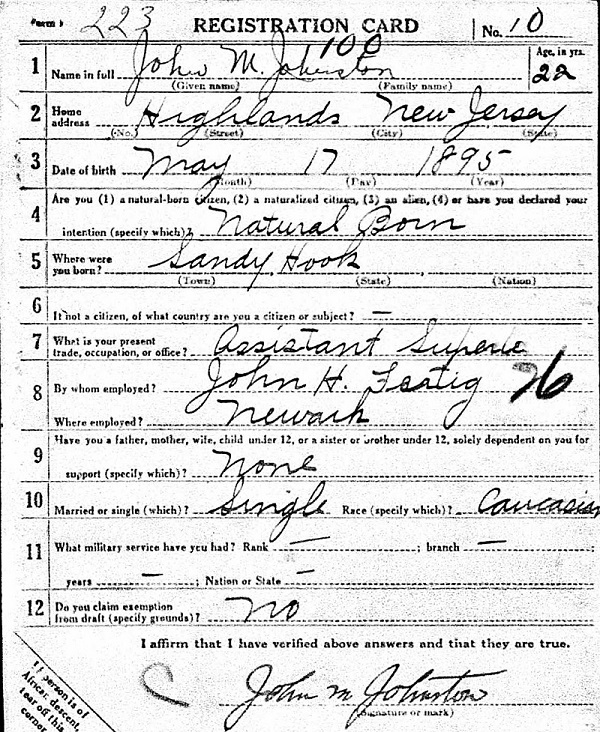 Form 1 223 REGISTRATION CARD No. 10
100
1 Name in full John M. Johnston Age, in yrs. 22
(Given name) (Family name)
2 Home address Highlands New Jersey
(No.) (Street) (City) (State)
3 Date of birth May 17 1895
(Month) (Day) (Year)
4 Are you (1) a natural-born citizen, (2) a naturalized citizen, (3) an alien, (4) or have you declared your
intention (specify which)? Natural Born
5 Where were you born? Sandy Hook
(Town) (State) (Nation)
6 If not a citizen, of what country are you a citizen or subject? —
7 What is your present trade, occupation, or office? Assistant
8 By whom employed? John H. 26
Where employed? Newark
9 Have you a father, mother, wife, child under 12, or a sister or brother under 12, solely dependent on you for
support (specify which)? None
10 Married or single (which)? Single Race (specify which)? Caucasian
11 What military service have you had? Rank — ; branch —
years — ; Nation or State —
12 Do you claim exemption from draft (specify grounds)? No
I affirm that I have verified above answers and that they are true.
John M Johnston
(Signature or mark)
If person is of
African descent,
tear off this
corner